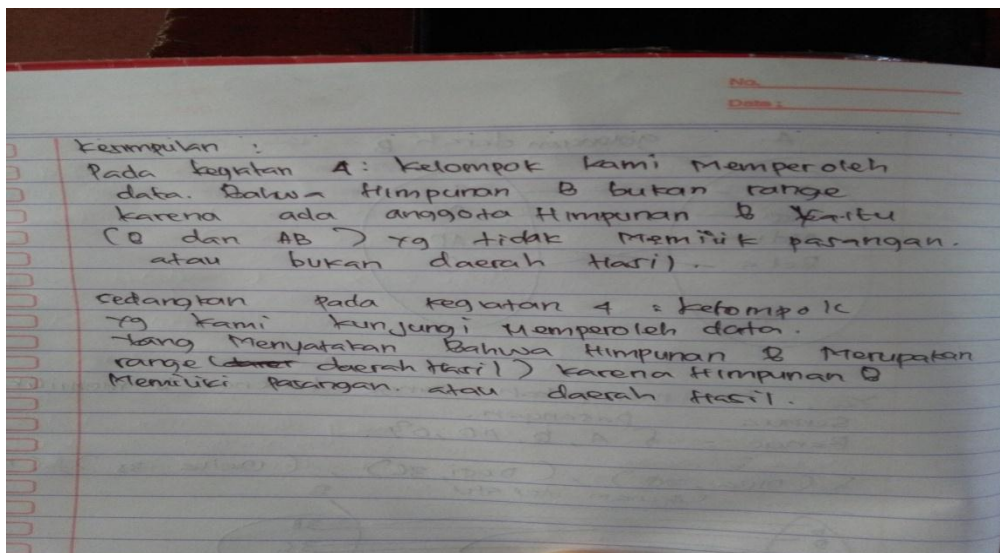 No.
Date :
Kesimpulan :
Pada kegiatan 4 : Kelompok kami memperoleh
data. Bahwa Himpunan B bukan range
karena ada anggota Himpunan B yaitu
(O dan AB) yg tidak memilik pasangan.
atau bukan daerah Hasil).
sedangkan pada kegiatan 4 : kelompok
yg kami kunjungi memperoleh data.
yang menyatakan Bahwa Himpunan B Merupakan
range (daerah Hasil) karena Himpunan B
Memiliki pasangan. atau daerah Hasil.